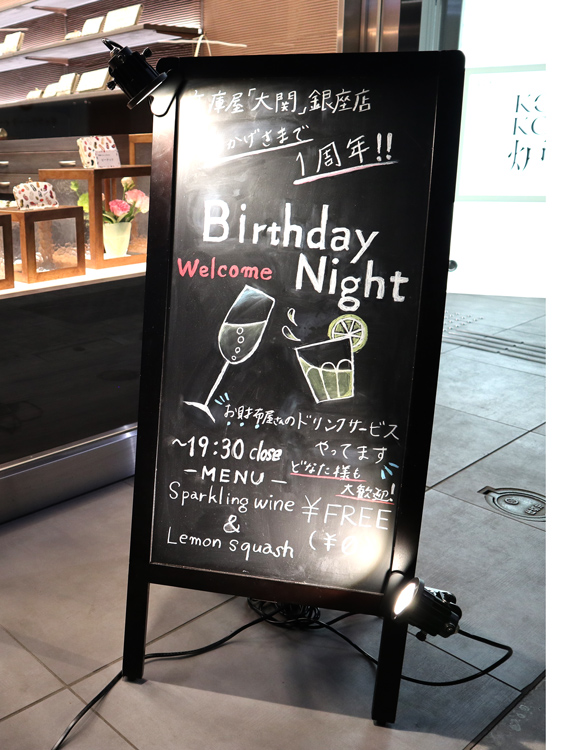 庫屋「大関」銀座店
かげさまで
1周年!!
Birthday
Welcome Night
お財布屋さんのドリンクサービス
やってます
~19:30 close
どなた様も
大歓迎!
-MENU-
Sparkling wine ¥FREE
&
Lemon squash (¥